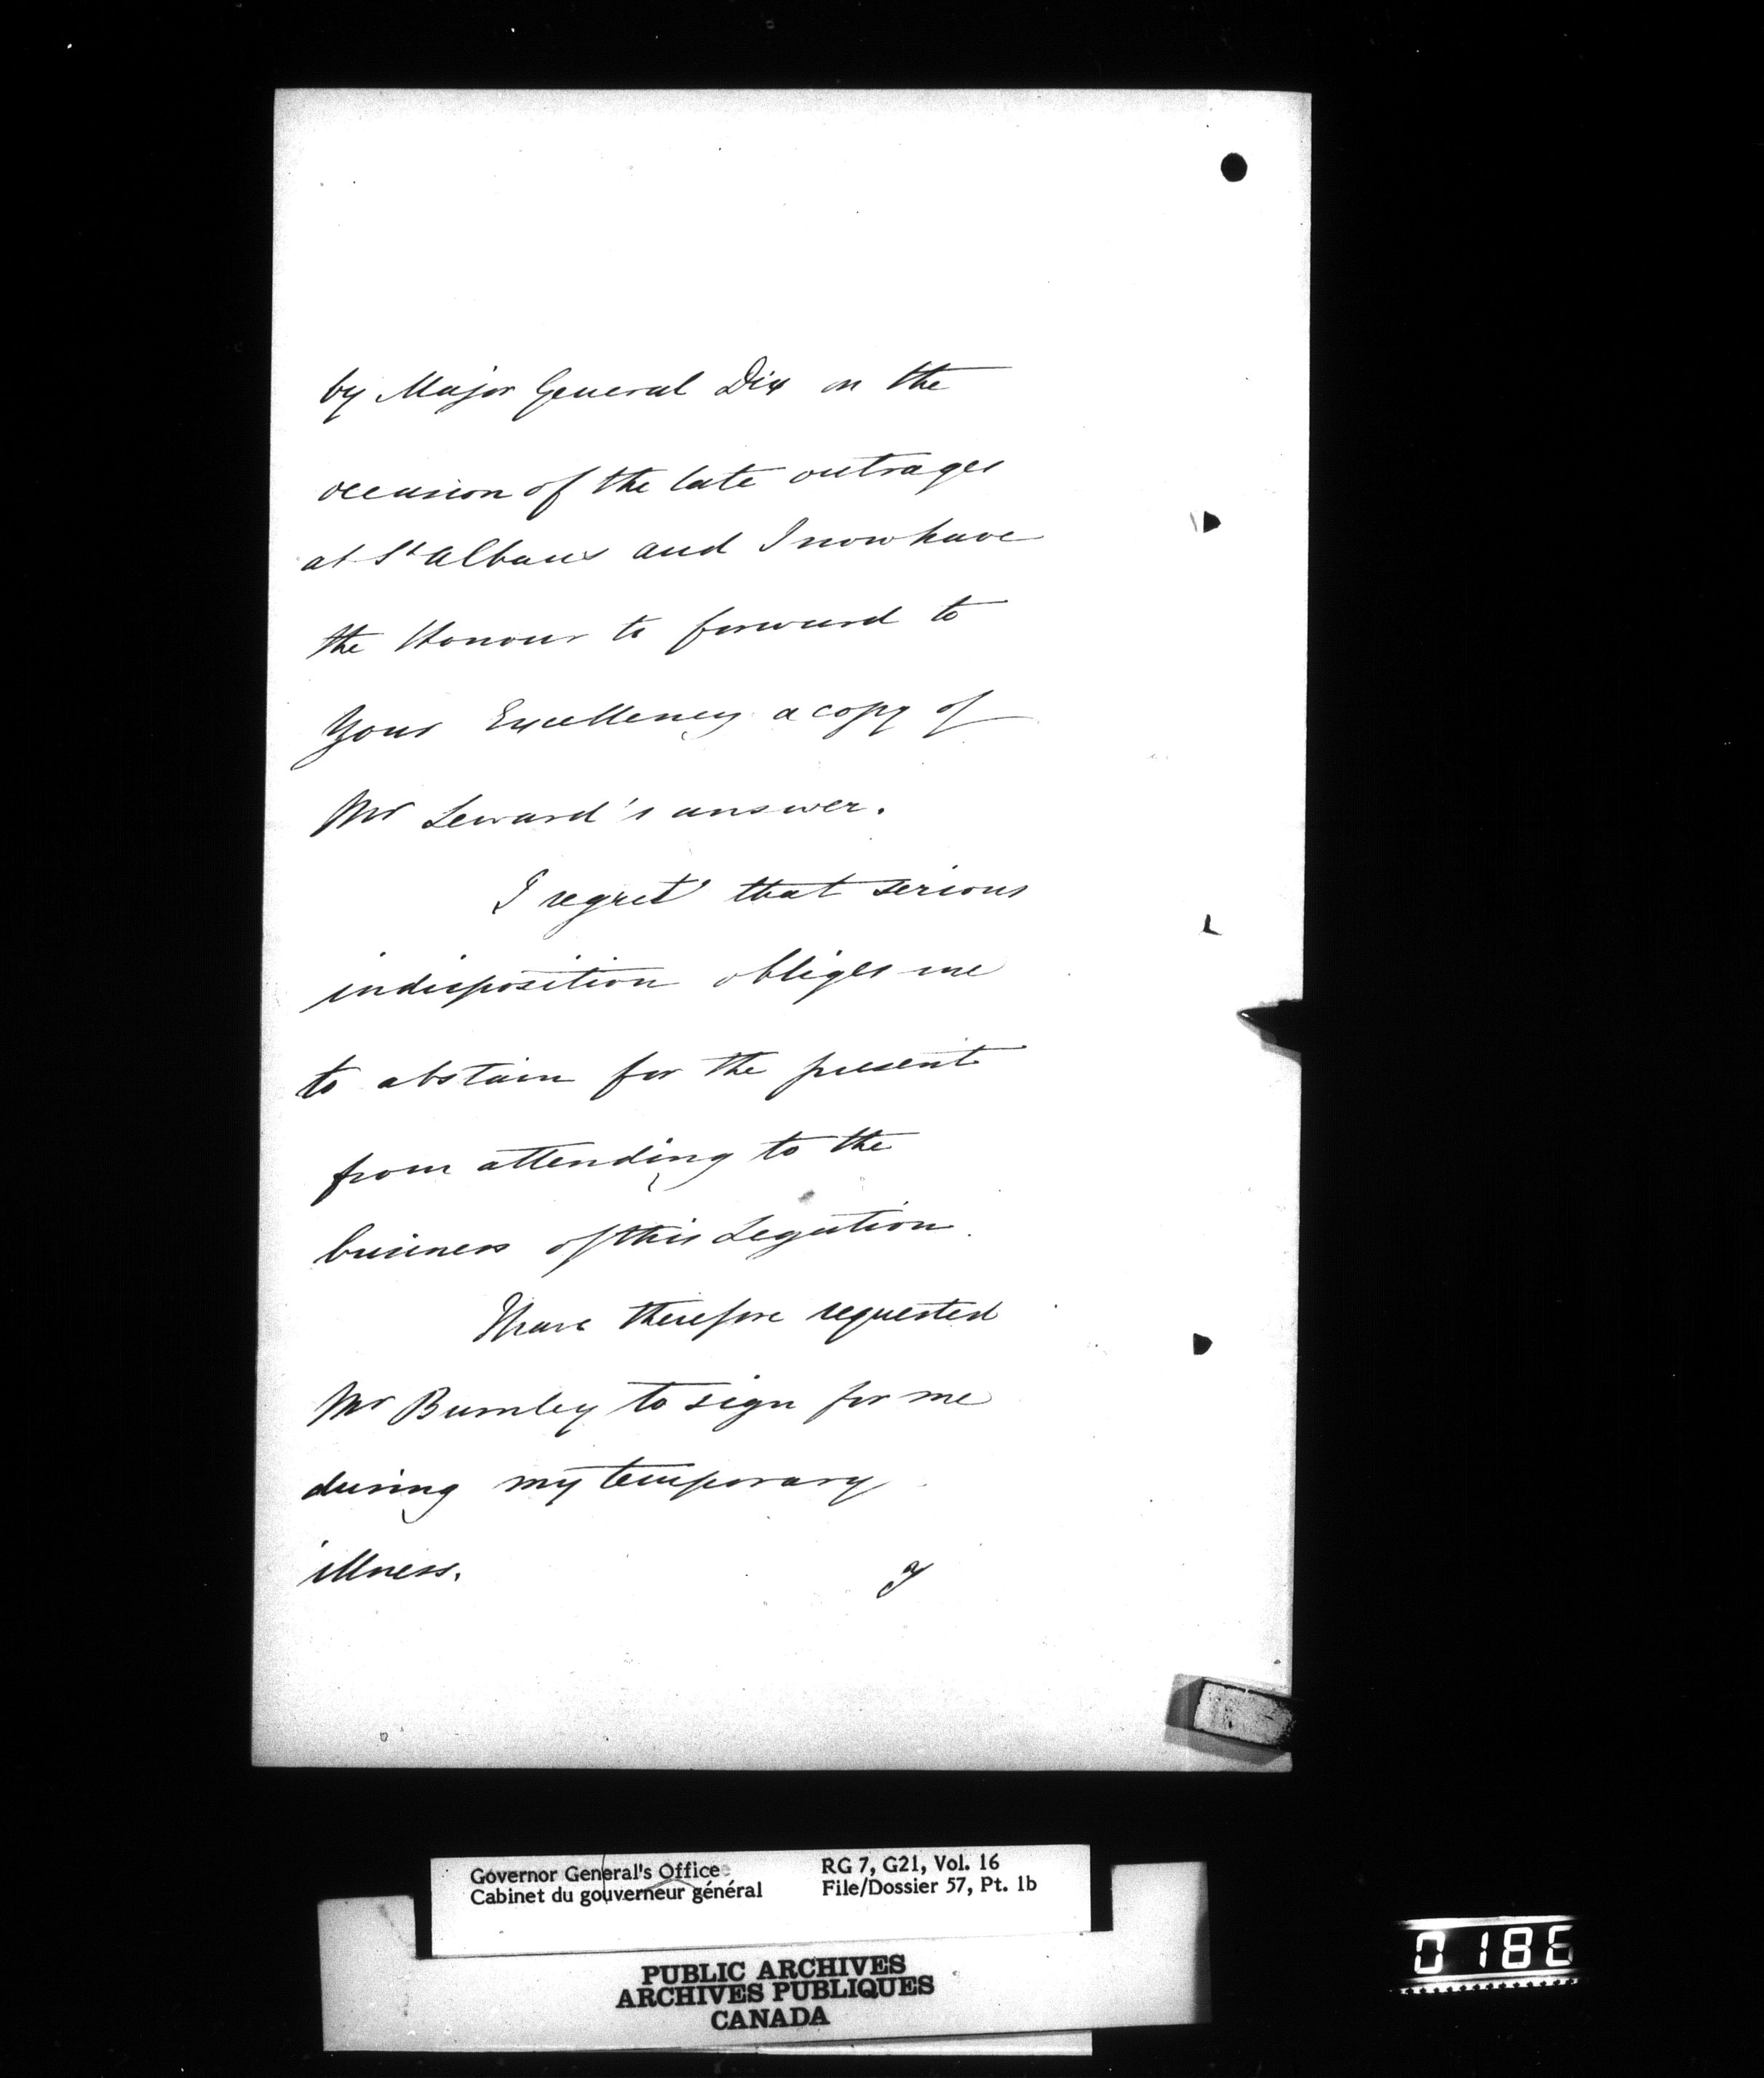 by Major General Dix on the
occasion of the late outrages
at St Albans and I now have
the Honour to forward to
Your Excellency a copy of
Mr Seward's answer.
I regret that serious
indisposition obliges me
to abstain for the present
from attending to the
business of this Legation.
I have therefore requested
Mr Burnley to sign for me
during my temporary
illness.
I
Governor General's Office
Cabinet du gouverneur général
RG 7, G21, Vol. 16
File/Dossier 57, Pt. 1b
PUBLIC ARCHIVES
ARCHIVES PUBLIQUES
CANADA